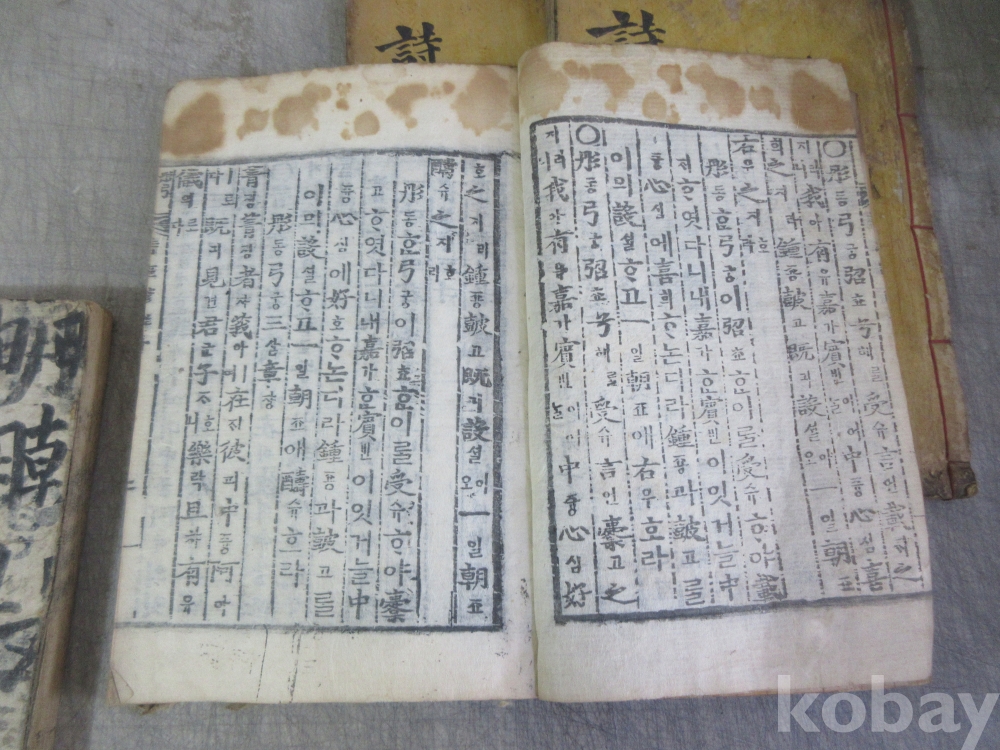 ○彤동弓궁弨쵸兮혜를受슈言언載ᄌᆡ之
지라我아有유嘉가賓빈이어늘中듕心심喜
희之지라鍾죵鼓고既긔設셜이오一일朝죠
右우之지호리라
彤동ᄒᆞᆫ弓궁이弨쵸ᄒᆞᆫ이ᄅᆞᆯ受슈ᄒᆞ야載
ᄌᆡᄒᆞ엿다니내嘉가ᄒᆞᆫ賓빈이잇거늘中
듕心심에喜희ᄒᆞ논디라鍾죵과鼓고ᄅᆞᆯ
이믜設셜ᄒᆞ고一일朝죠애右우호라
○彤동弓궁弨쵸兮혜를受슈言언櫜고之
지라我아有유嘉가賓빈이어늘中듕心심好
호之지라鍾죵鼓고既긔設셜이오一일朝죠
醻슈之지호리라
彤동ᄒᆞᆫ弓궁이弨쵸ᄒᆞᆫ이ᄅᆞᆯ受슈ᄒᆞ야櫜
고ᄒᆞ엿다니내嘉가ᄒᆞᆫ賓빈이잇거늘中
듕心심에好호ᄒᆞ논디라鍾죵과鼓고ᄅᆞᆯ
이믜設셜ᄒᆞ고一일朝죠애醻슈호라
彤동弓궁三삼章쟝
菁졍菁졍者쟈莪아ㅣ在ᄌᆡ彼피中듕阿아
ㅣ로다既긔見견君군子ᄌᆞ호니樂락且챠有유
儀의로다
詩
詩
明
kobay